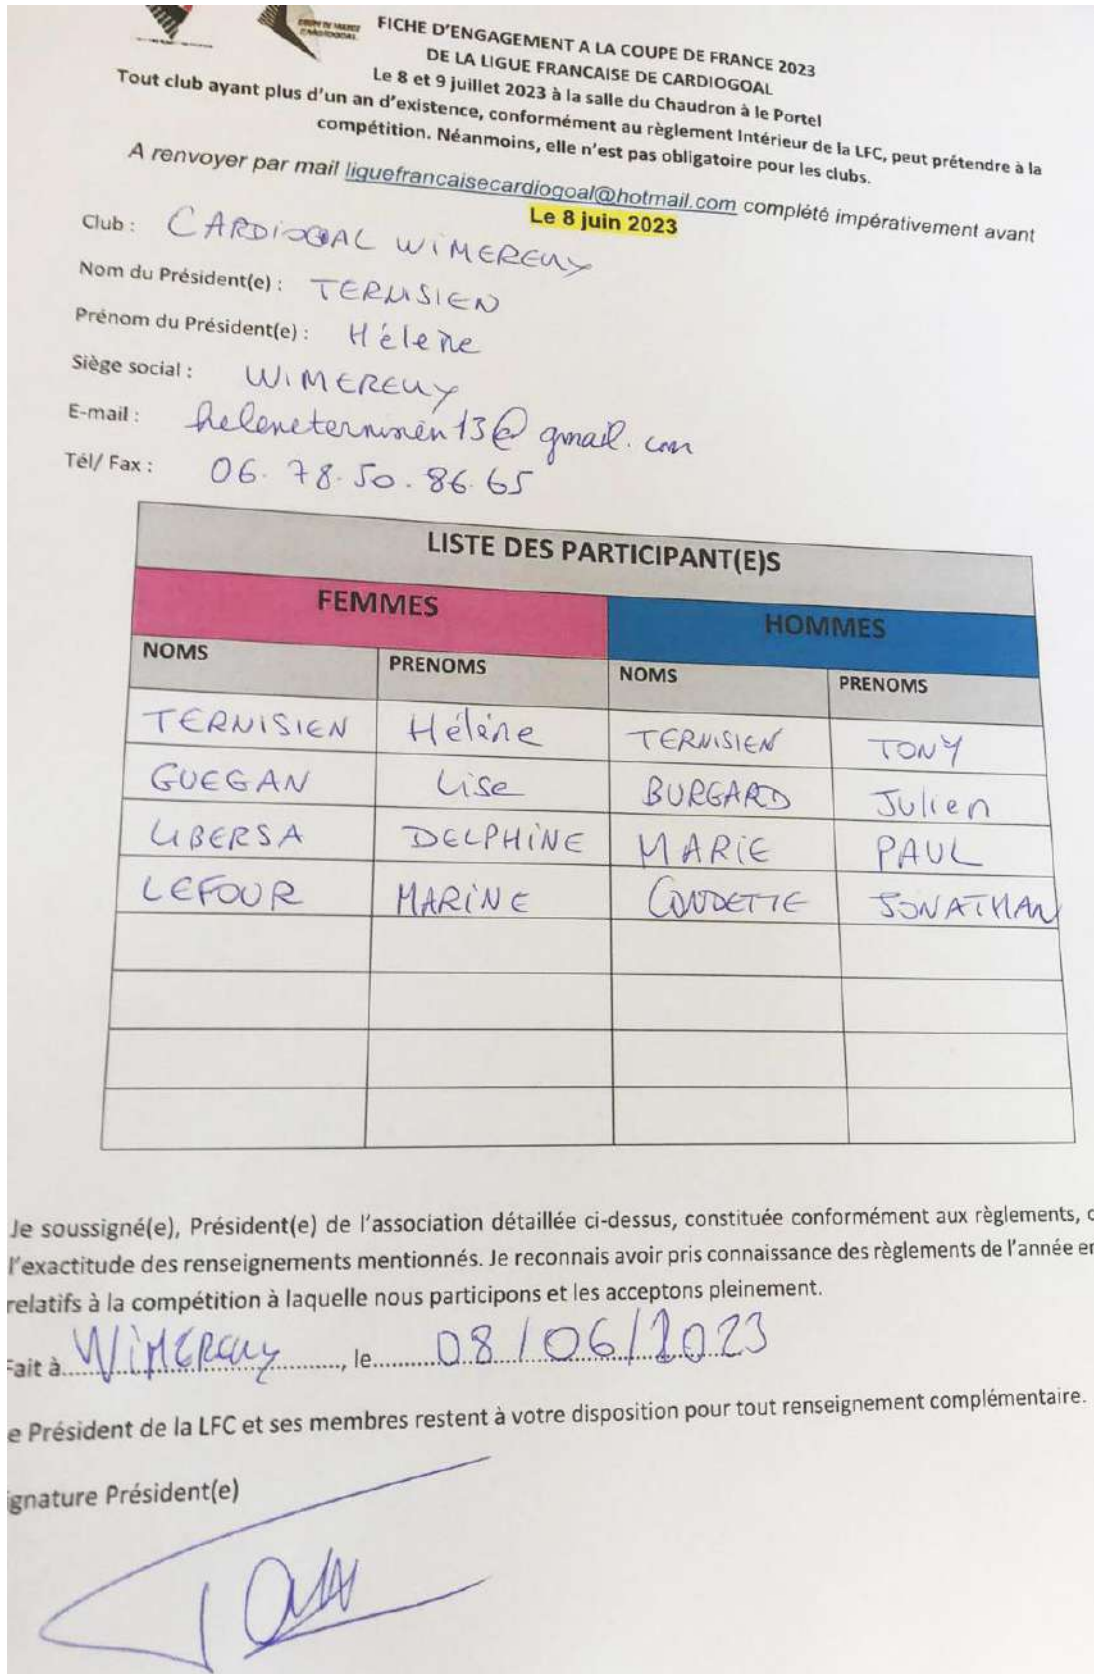 COUPE DE FRANCE
CARDIOGOAL
FICHE D'ENGAGEMENT A LA COUPE DE FRANCE 2023
DE LA LIGUE FRANCAISE DE CARDIOGOAL
Le 8 et 9 juillet 2023 à la salle du Chaudron à le Portel
Tout club ayant plus d'un an d'existence, conformément au règlement Intérieur de la LFC, peut prétendre à la
compétition. Néanmoins, elle n'est pas obligatoire pour les clubs.
A renvoyer par mail liguefrancaisecardiogoal@hotmail.com complété impérativement avant
Le 8 juin 2023
Club : CARDIOGOAL WIMEREUX
Nom du Président(e) : TERNISIEN
Prénom du Président(e) : Hélène
Siège social : WIMEREUX
E-mail : heleneternisien13@gmail.com
Tél/ Fax : 06.78.50.86.65
LISTE DES PARTICIPANT(E)S
FEMMES HOMMES
NOMS PRENOMS NOMS PRENOMS
TERNISIEN Hélène TERNISIEN TONY
GUEGAN Lise BURGARD Julien
LIBERSA DELPHINE MARIE PAUL
LEFOUR MARINE CONDETTE JONATHAN
Je soussigné(e), Président(e) de l'association détaillée ci-dessus, constituée conformément aux règlements, c
l'exactitude des renseignements mentionnés. Je reconnais avoir pris connaissance des règlements de l'année en
relatifs à la compétition à laquelle nous participons et les acceptons pleinement.
Fait à WIMEREUX, le 08/06/2023
e Président de la LFC et ses membres restent à votre disposition pour tout renseignement complémentaire.
ignature Président(e)